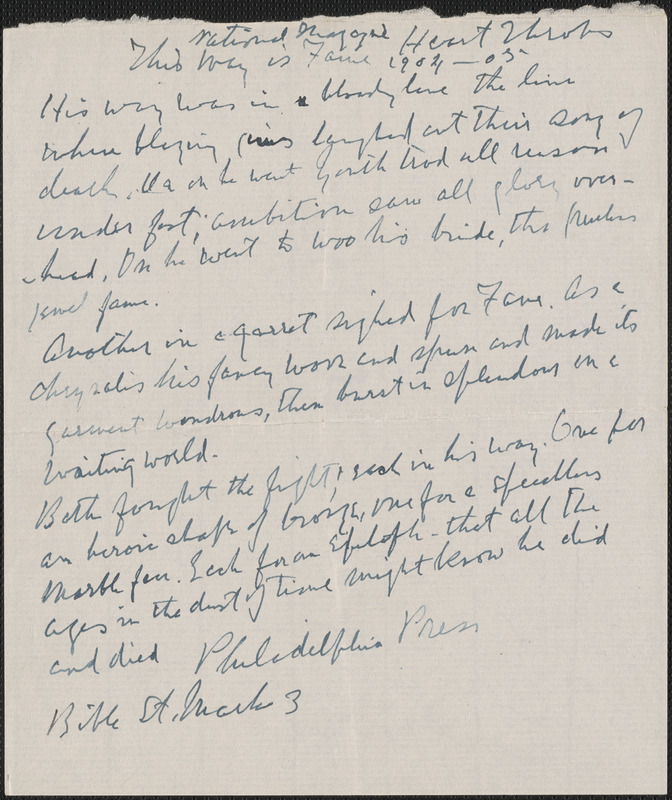 National Magazine Heart Throbs
This Way is Fame 1904-05
His way was in a bloody lane the line
where blazing guns laughed out their song of
death. On he went youth trod all reason
under foot; ambition saw all glory over-
head. On he went to woo his bride, the
jewel fame.
Another in a garret sighed for Fame. As a
chrysalis his fancy wove and spun and made its
garment wondrous, then burst in splendour on a
waiting world.
Both fought the fight, each in his way. One for
an heroic shape of bronze, one for a speechless
marble face. Each for an Epitaph - that all the
ages in the dust of time might know he did
and died Philadelphia Press
Bible St. Mark 3